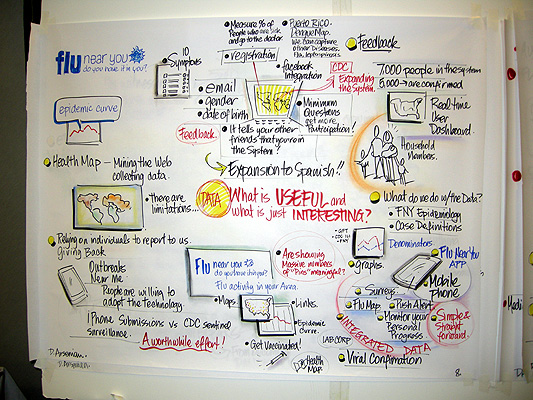 flu near you
do you have it in you?
10
Symptoms
• Measure % of
People who are sick
and go to the doctor
registration
• Puerto Rico.
Dengue Map.
We can capture
other Diseases.
Flu, leptospirosis
Facebook
Integration
CDC
Expanding
the System.
Feedback
7,000 people in the system
5,000 → are confirmed
Real-time
User
Dashboard.
Household
Members.
epidemic curve
• email
• gender
• date of birth
• Minimum
Questions
get more
Participation!
Feedback
• It tells your other
friends that you're in
the System!
Expansion to Spanish!!
Health Map — Mining the Web
collecting data.
• there are
limitations...
DATA
What is USEFUL and
what is just INTERESTING?
What do we do w/the Data?
• FNY Epidemiology
• Case Definitions
Denominators
Relying on individuals to report to us.
Giving Back
Outbreaks
Near Me
People are willing to
adopt the technology
iPhone Submissions vs CDC sentinel
surveillance.
A worthwhile effort!
Flu near you
do you have it in you?
Flu activity in your Area.
• Are showing
Massive numbers
of "Pins" meaningful?
• Maps
• Links.
• Epidemic
Curve.
• Get Vaccinated!
Health
Map
• graphs.
Flu Near You
APP
Mobile
Phone
• Surveys
• Flu Map
• Push Alert
• Monitor your
Personal
Progress
Simple &
Straight
forward.
INTEGRATED DATA
LAB CORP
• Viral Confirmation